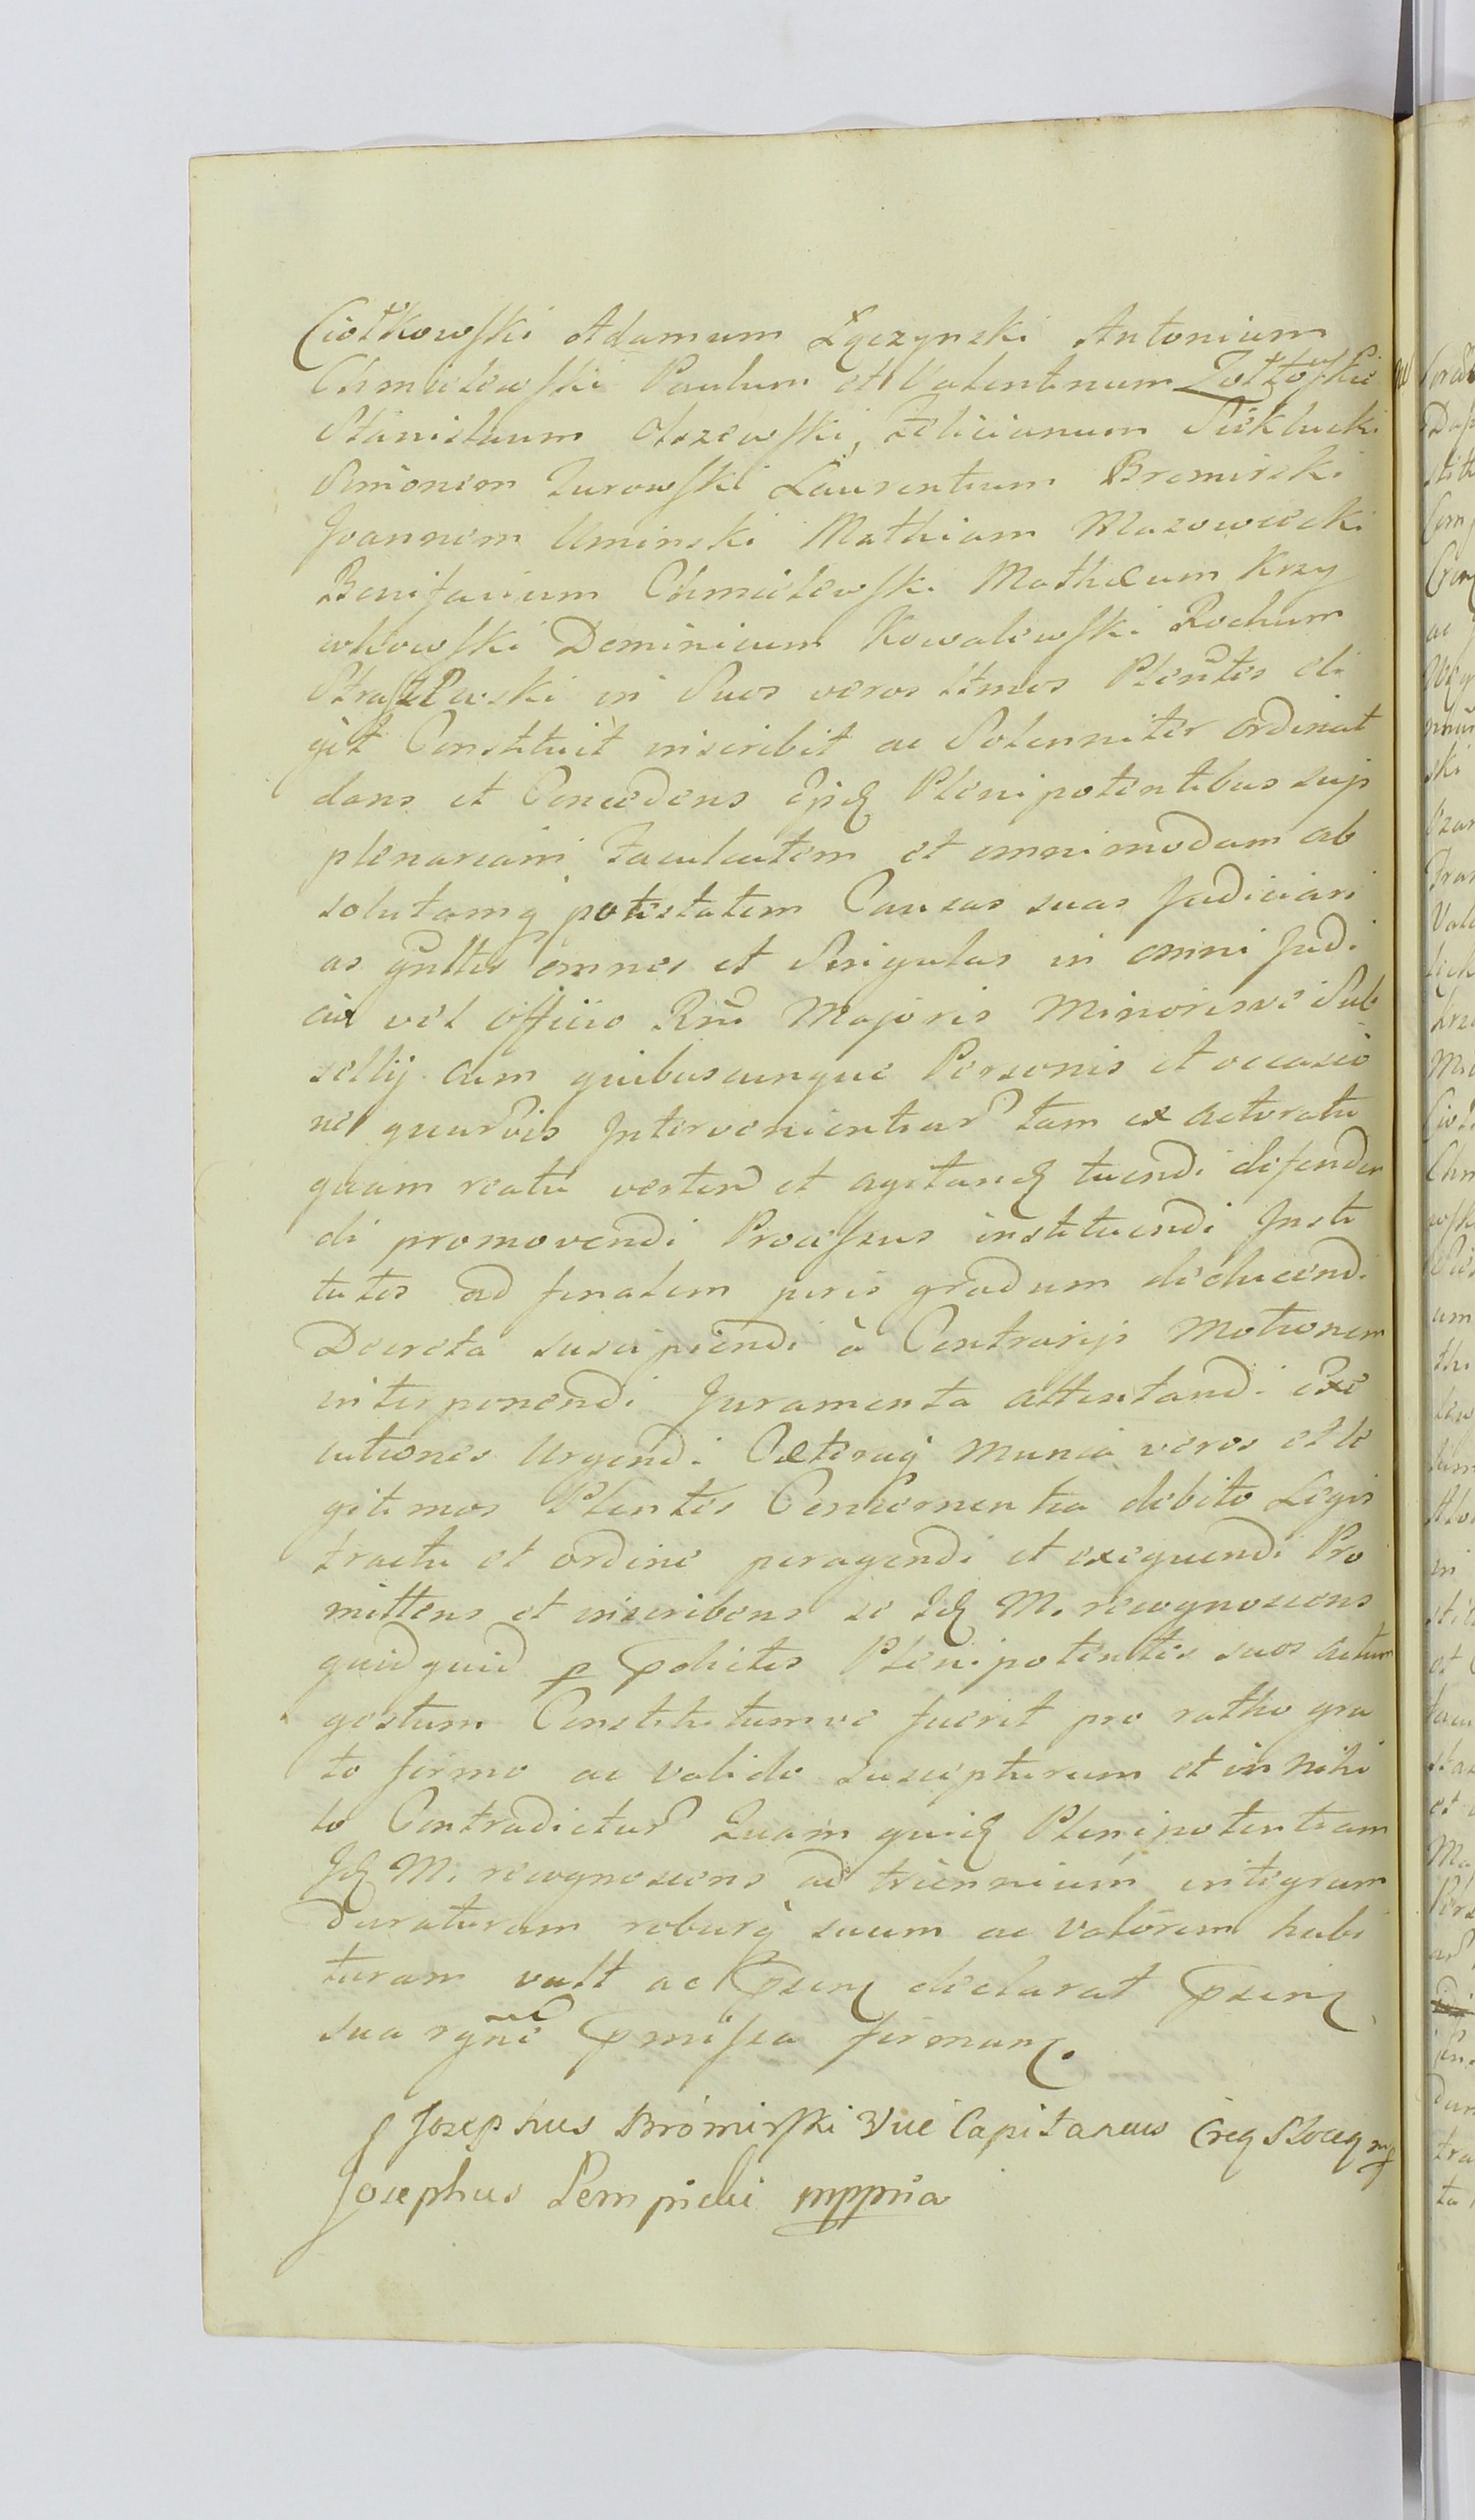 Ciołkowski Adamum Łączynski Antonium
Chmielewski Paulum et Valentinum Zołtowskie
Stanislaum Olszewski, Felicianum Sieklucki
Simonem Zurowski Laurentium Bromirski
Joannem Uminski Mathiam Mazowiecki
Bonifacium Chmielewski Mathæum Krzy
wkowski Dominicum Kowalewski Rochum
Straszewski in Suos veros Ltmos Plentes eli
git Constituit inscribit ac Solenniter ordinat
dans et Concedens Plenipotentibus suis
plenariam Facultatem et omnimodam ab
solutamq potestatem Causas suas Judiciari
as gnltes omnes et Singulas in omni Judi
cio vel Officio Rni Majoris Minorisve Sub
sellij cum quibuscunque Personis et occasio
ne quarvis Intervenientiar tam ex actoratu
quam reatu verten et agitand tuendi defenden
di promovendi Processus instituendi Insti
tutos ad finalem juris gradum deducendi
Decreta suscipiendi à Contrarijs Motionem
interponendi Juramenta attentandi Exe
cutiones Urgendi Cæteraq Munia veros et le
gitimos Plentes Concernentia debito Legis
tractu et ordine peragendi et exequendi Pro
mittens et inscribens se Id M. recognoscens
quidquid p pdictos Plenipotentes suos actum
gestum Constitutumve fuerit pro ratho gra
to firmo ac valido suscepturum et in nihi
lo Contradictur Quam quid Plenipotentiam
Id M. recognoscens ad triennium integrum
duraturam roburq suum ac valorem habi
turam vult ac declarat
sua rgne pmissa
Josephus Bromirski Vice Capitaneus
Josephus Pempicki mppria